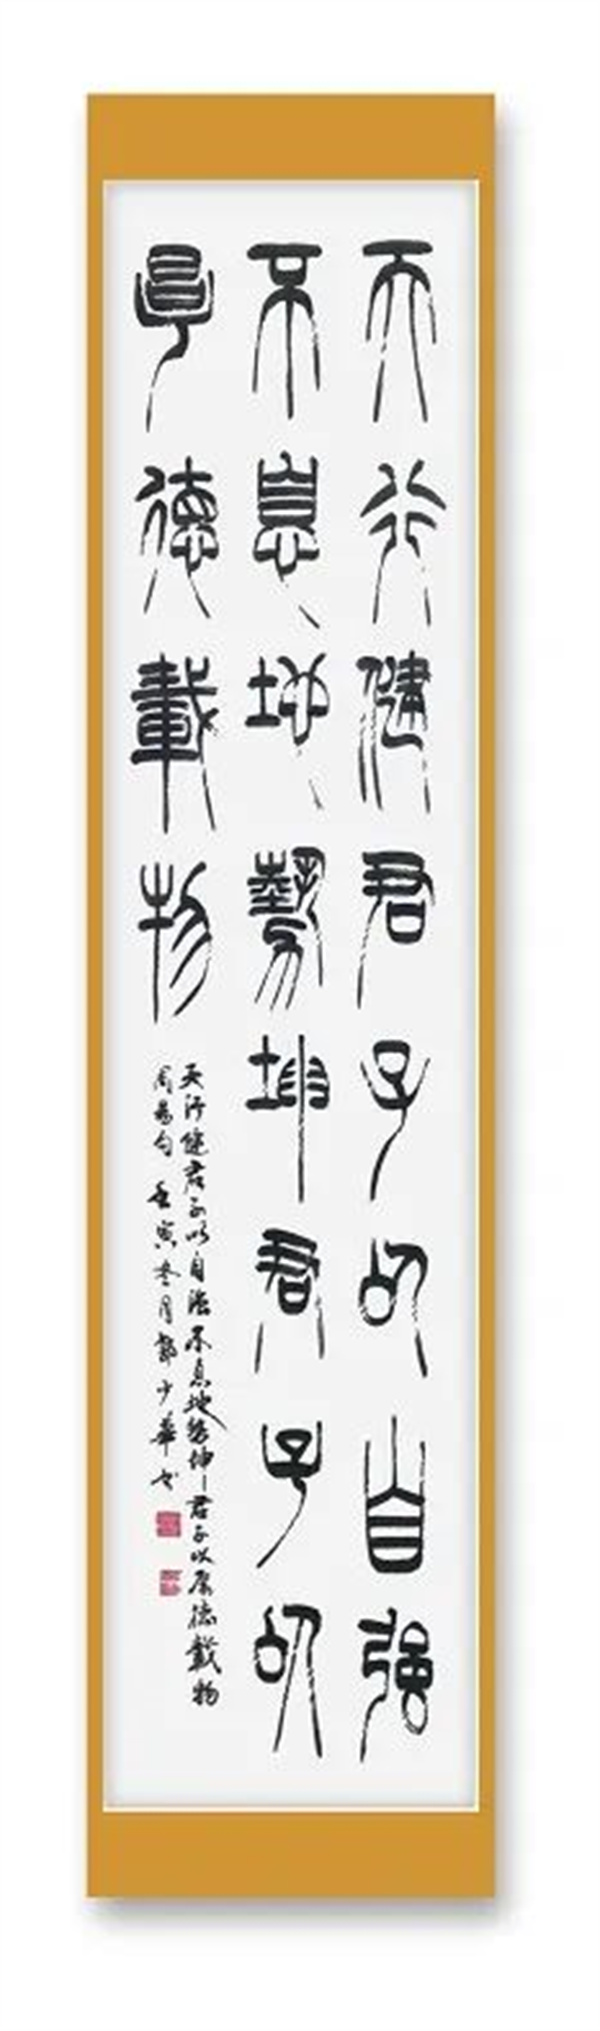 天行健君子以自强
不息地勢坤君子以
厚德載物
天行健君子以自强不息地勢坤君子以厚德載物
周易句 壬寅叁月鄭少華书